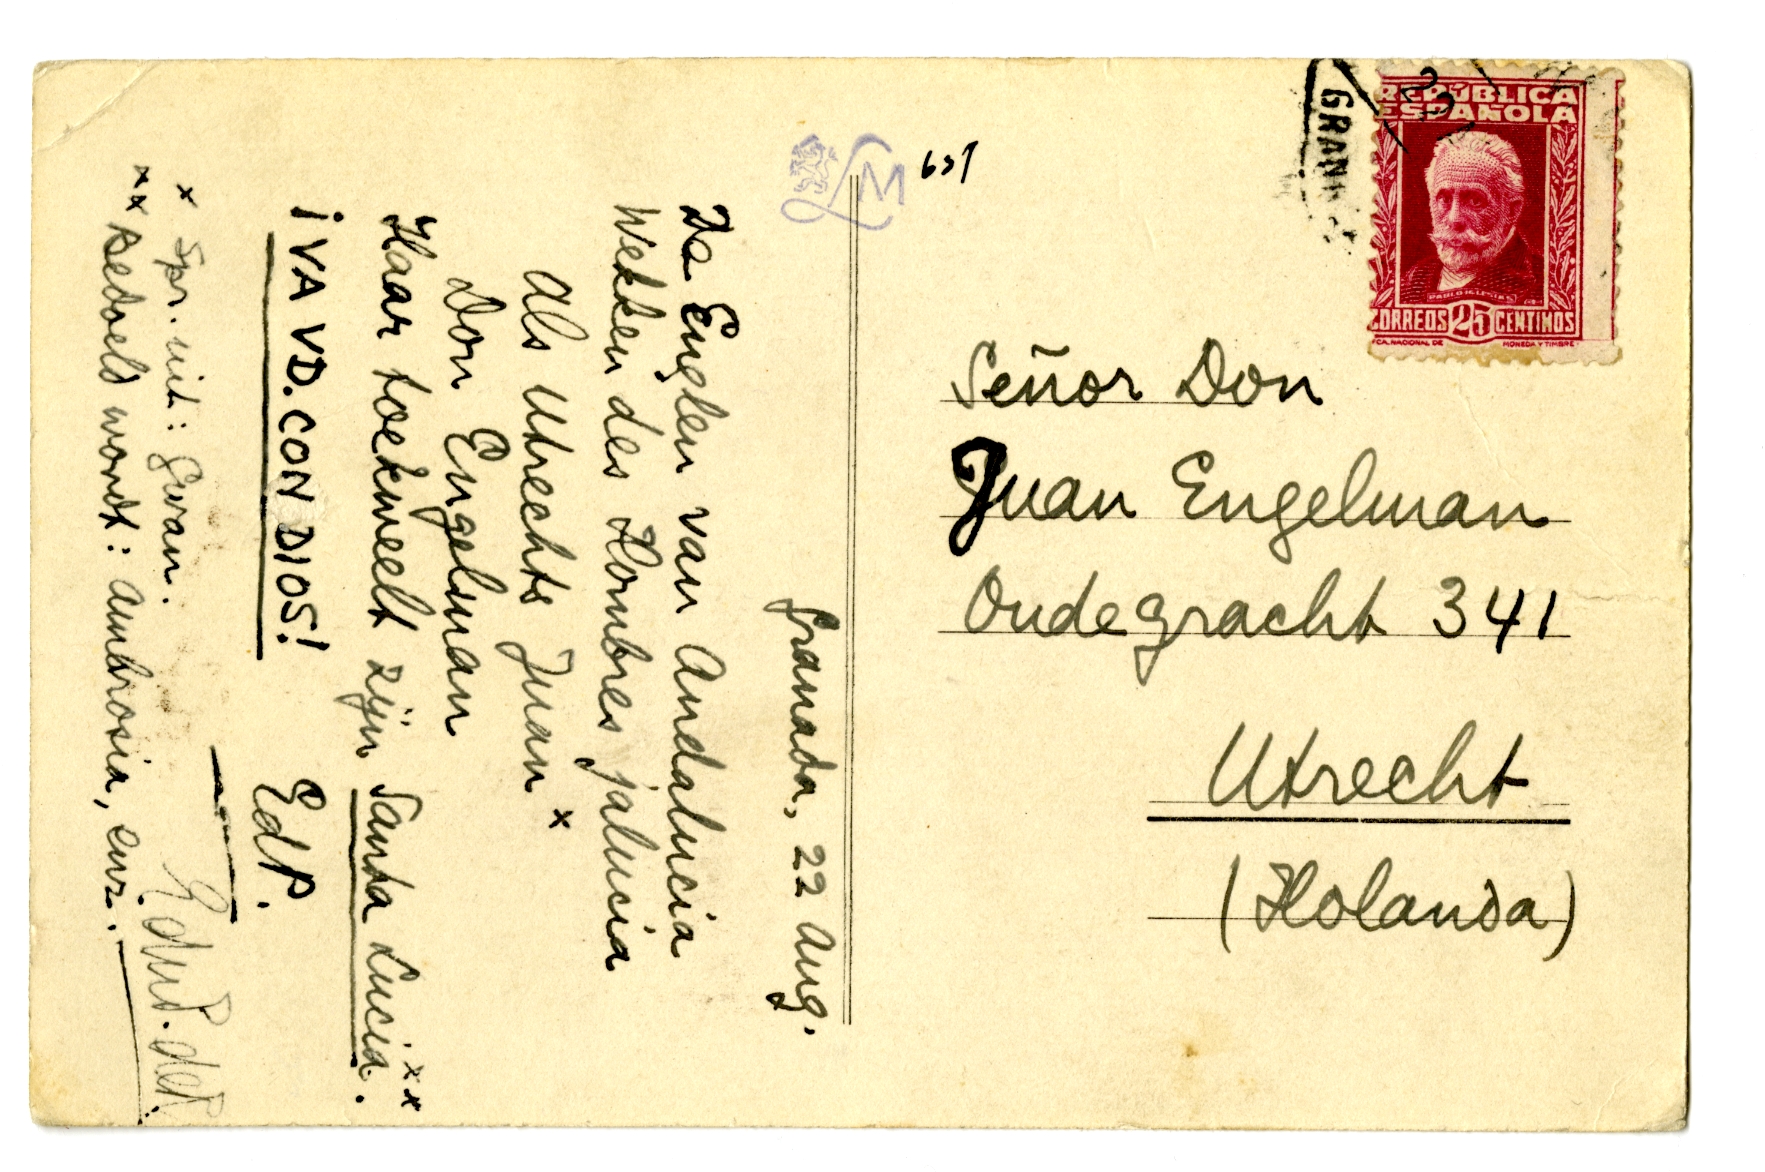 Granada, 22 Aug.
De Englen van Andalucia
Wekken des Hombres jalucia
Als Utrechts Juan x
Don Engelman
Haar toekweelt zijn Santa Lucia. xx
¡VA VD. CON DIOS!
EdP.
x Spr. uit: Gwan.
xx Bedoeld wordt: ambrosia, enz.
Edud. deP.
LM
637
GRANADA
22
REPÚBLICA
ESPAÑOLA
PABLO IGLESIAS
CORREOS 25 CENTIMOS
MONEDA Y TIMBRE
Señor Don
Juan Engelman
Oudegracht 341
Utrecht
(Holanda)